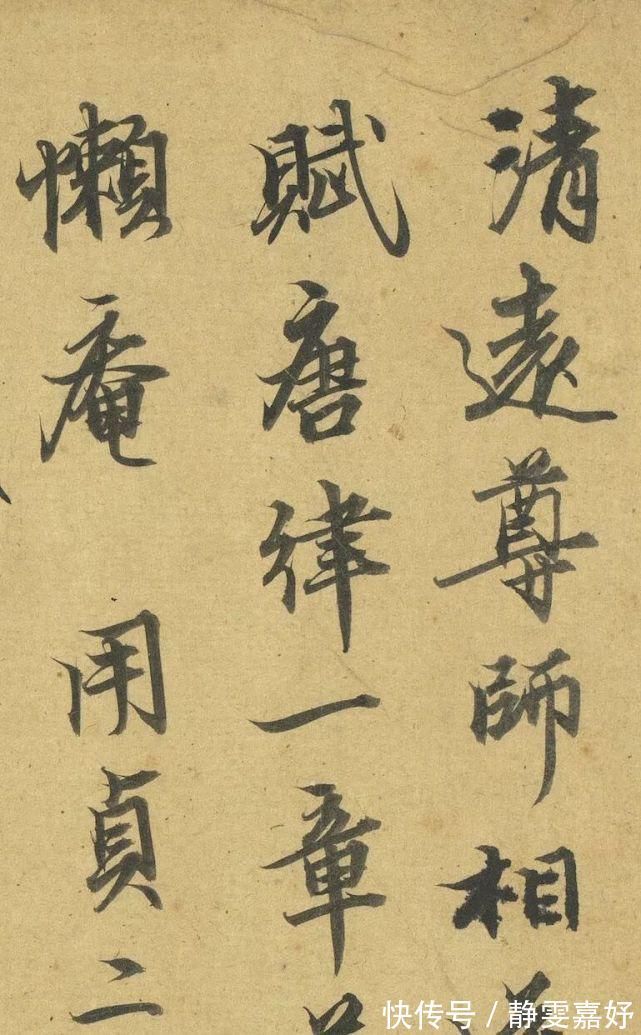 清遠尊師相
賦唐律一章
懶庵 用貞二
快传号／静雯嘉妤